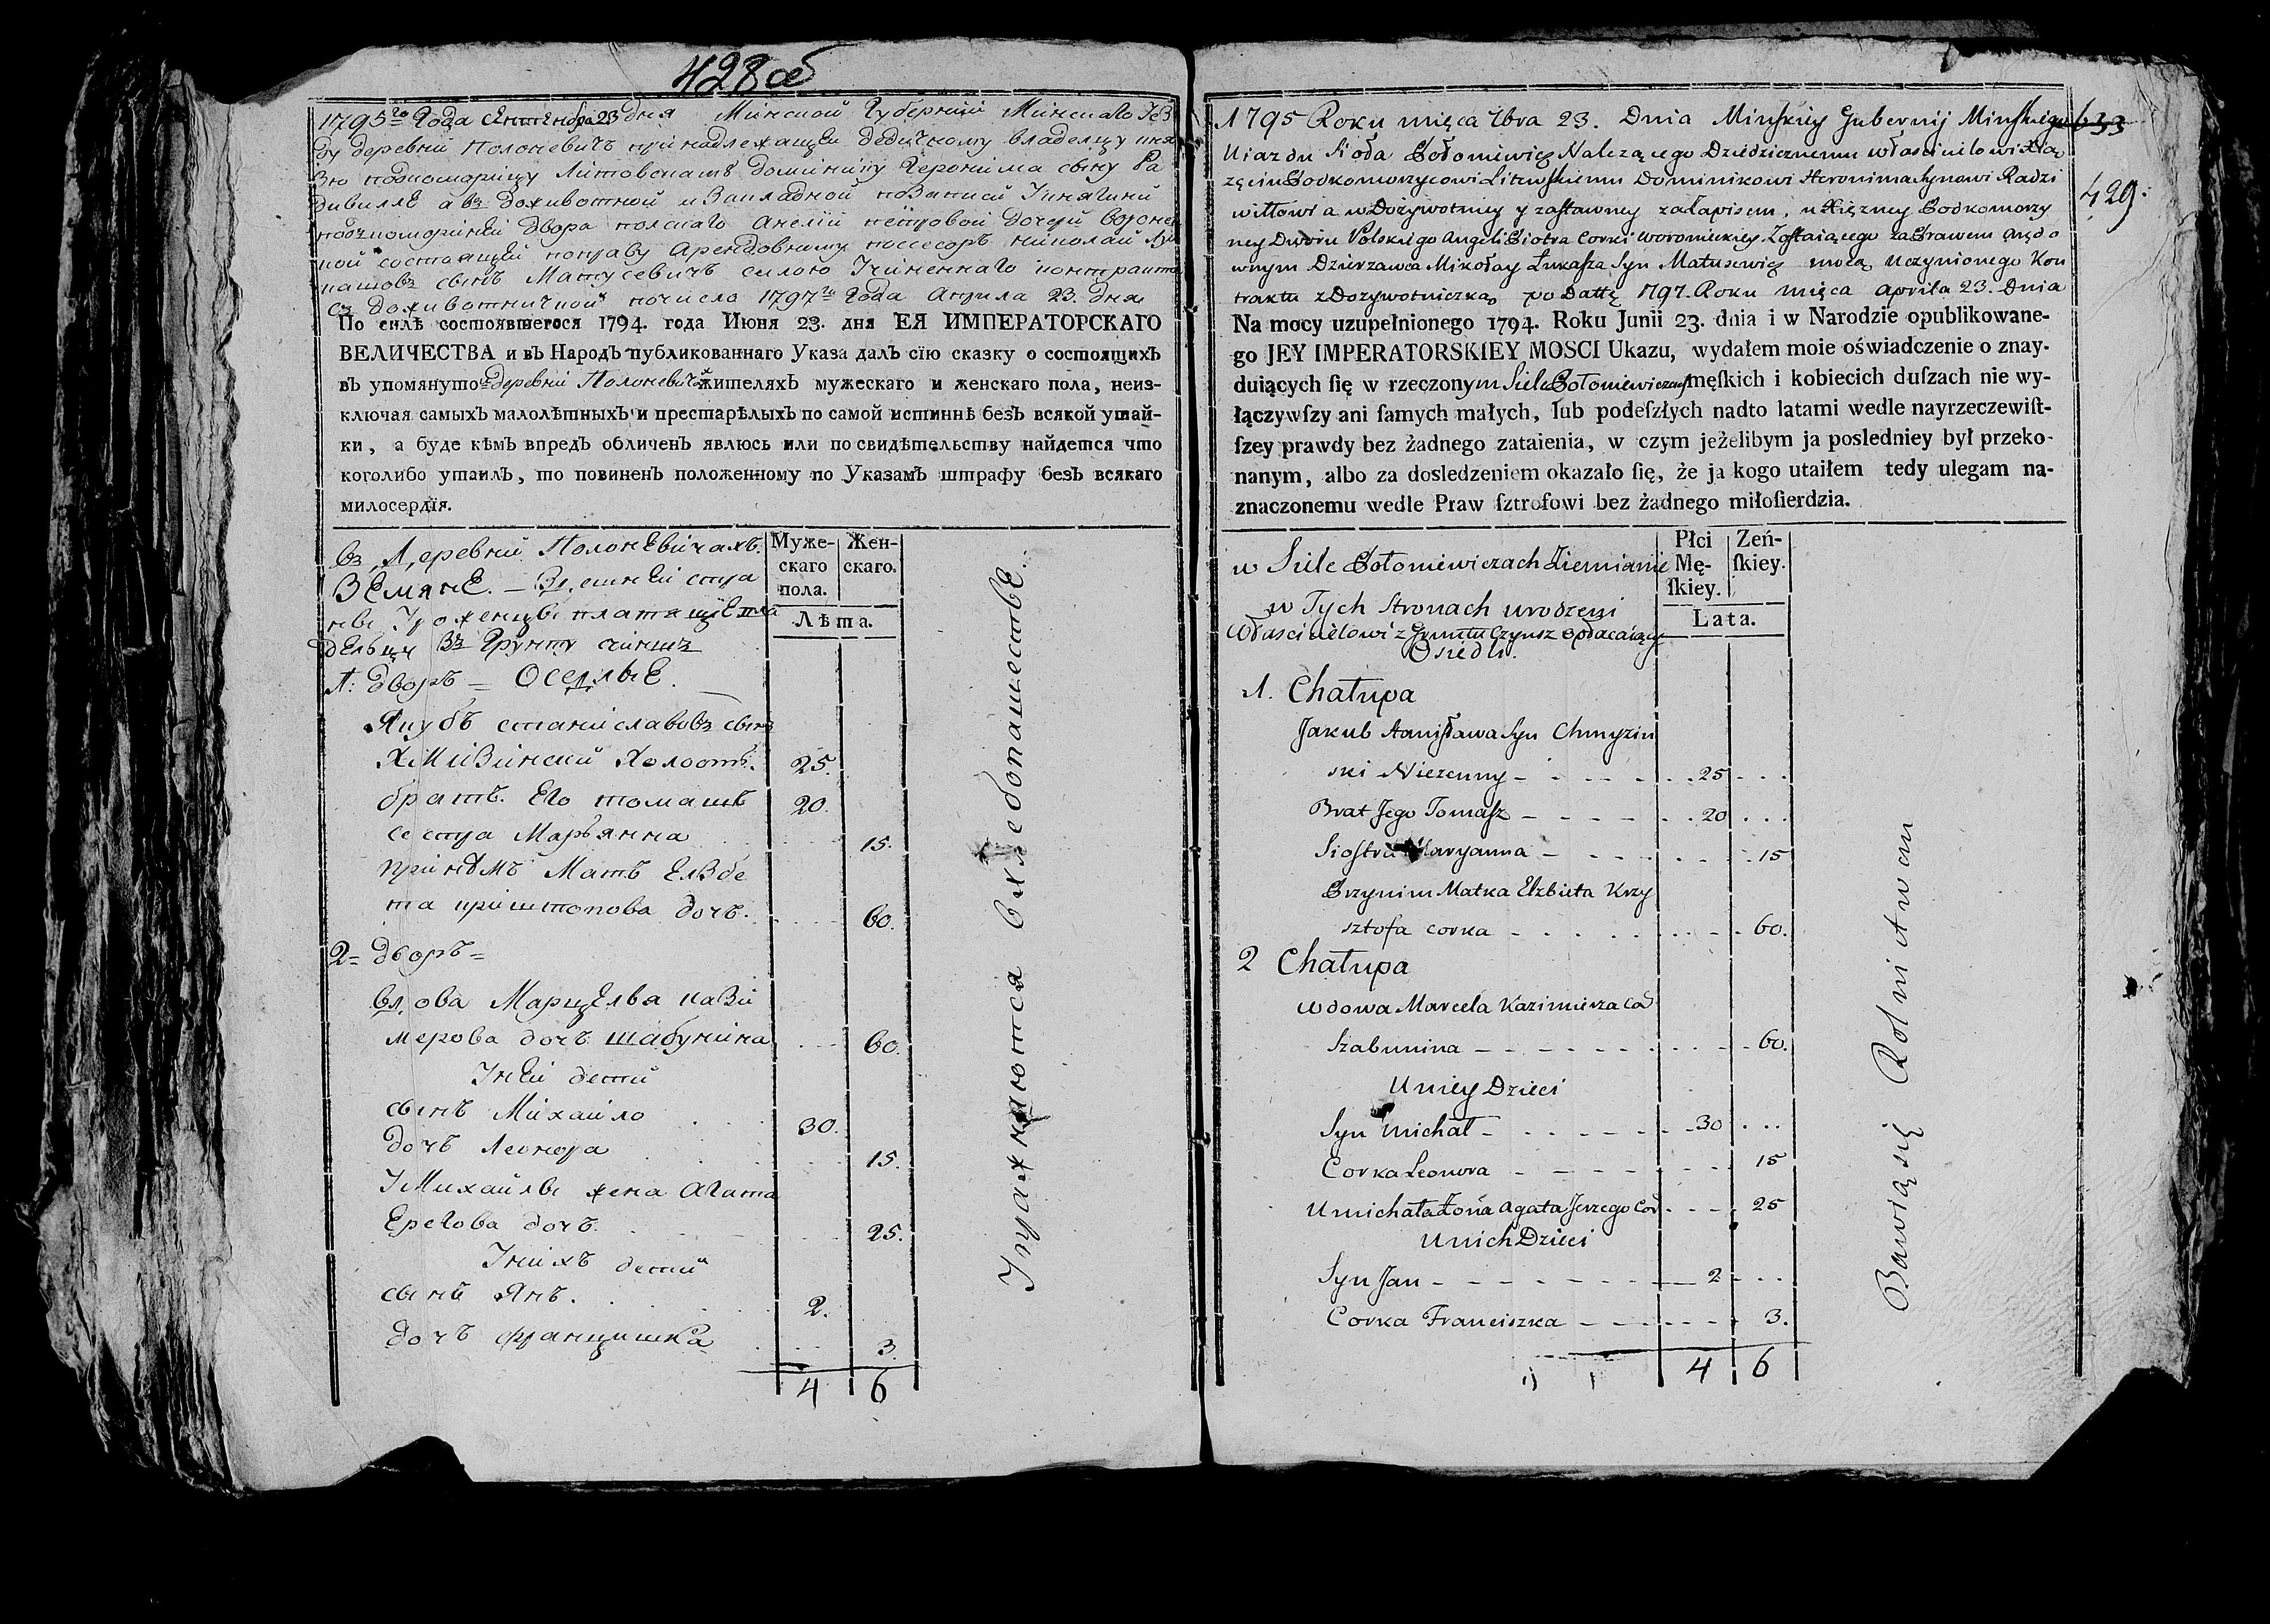 428 об
1795го Года Сентембра 23 дня Минской Губерний Минскаго Уез
ду деревни Полоневичъ принадлежащей дедичному владелцу кня
зю подкоморицу Литовскаму Доминику Геронима сыну Ра
дивилле а въ доживотной и закладной по записи У княгини
подкомориней двора полскаго Анелии петровой дочери Воронец
кой состоящей по праву Арендовному поссесоръ Николай Лу
кашовъ сынъ Матусевичъ силою Учиненнаго контракта
съ доживотничкой по число 1797го Года Априла 23. дня
По силѣ состоявшегося 1794. года Июня 23. дня ЕЯ ИМПЕРАТОРСКАГО
ВЕЛИЧЕСТВА и въ Народъ публикованнаго Указа далъ сію сказку о состоящихъ
въ упомянутой деревни Полоневичахъ жителяхъ мужескаго и женскаго пола, неиз-
ключая самыхъ малолѣтныхъ и престарѣлыхъ по самой истиннѣ безъ всякой утай-
ки, а буде кѣмъ впредъ обличенъ явлюсь или по свидѣтельству найдется что
коголибо утаилъ, то повиненъ положенному по Указамъ штрафу безъ всякаго
милосердія.
Муже-
скаго
пола.
Жен-
скаго.
Лѣта.
Въ Деревни Полоневичахъ
Земяне. – Здешней сто
ны Уроженцы платящие вла
дельцу Зъ Грунту чиншъ
1: дворъ = Оседлые.
Якубъ станиславовъ сынъ
Хмизинский Холостъ. 25.
братъ Его томашъ 20.
сестра Марьянна 15.
При нӏомъ Мать Елзбе
та криштопова дочь. 60.
2= дворъ =
вдова Марцеля кази
мерова дочь Шабунина 60.
У ней дети
сынъ Михайло 30.
дочь Леонора 15.
У Михайлы жена Агата
Ерегова дочь. 25.
У нихъ дети
сынъ Янъ. 2.
дочь францишка 3.
4 6
Упражняются в хлебопашестве.
633
429.
1795 Roku mięca 7bra 23. Dnia Minskiey Gubernij Minskiego
Ujazdu Sioła Połoniewicz Należącego Dziedzicznemu własciicielowi Xżią
żęciu Podkomorzycowi Litewskiemu Dominikowi Heronima synowi Radzi
wiłłowi a w Dożywotniey y zastawney za Zapisem, u Xiężney Podkomorzy
ney Dworu Polskiego Angeli Piotra Corki Woronieckiey Zostaiącego za Prawem aręd o
wnym Dzierzawca Mikołay Łukasza Syn Matusewicz mocą uczynionego Kon
traktu z Dozywotniczką po Dattę 1797. Roku mięca aprila 23. Dnia
Na mocy uzupełnionego 1794. Roku Junii 23. dnia i w Narodzie opublikowane-
go JEY IMPERATORSKIEY MOSCI Ukazu, wydałem moie oświadczenie o znay-
duiących ſię w rzeczonym Siele Połoniewiczach męſkich i kobiecich duſzach nie wy-
łączywſzy ani ſamych małych, lub podeſzłych nadto latami wedle nayrzeczewiſt-
ſzey prawdy bez żadnego zataienia, w czym jeżelibym ja posledniey był przeko-
nanym, albo za dosledzeniem okazało ſię, że ja kogo utaiłem tedy ulegam na-
znaczonemu wedle Praw ſztrofowi bez żadnego miłoſierdzia.
Płci
Mę-
ſkiey.
Zeń-
ſkiey.
Lata.
w Siele Połoniewiczach Ziemianie
w Tych stronach urodzeni
Własciicielowi z Gruntu Czynsz opłacaiący
Osiedli.
1. Chałupa
Jakub Stanisława Syn Chmyzin
ski Niezenny 25
Brat Jego Tomasz 20
Siostra Maryanna 15
Przy nim Matka Elzbieta Krzy
sztofa corka 60.
2 Chałupa
Wdowa Marcela Kazimierza Co
Szabunina 60.
U niey Dzieci
Syn Michał 30
Corka Leonora 15
U Michała Żona Agata Jerzego Cor 25
U nich Dzieci
Syn Jan 2
Corka Franciszka 3.
4 6
Bawią się Rolnictwem